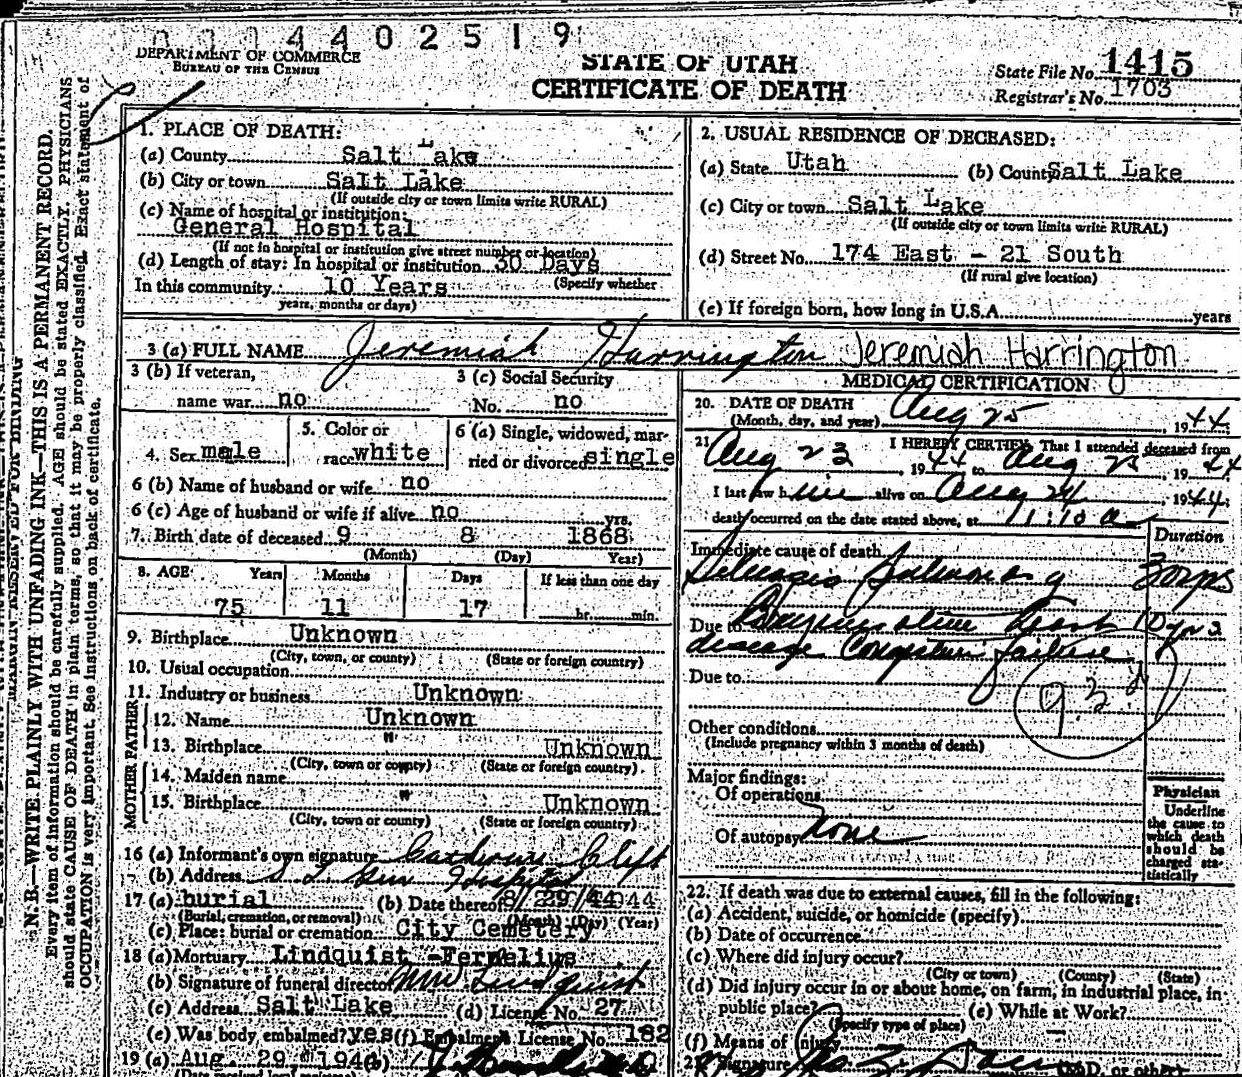 0114402519
DEPARTMENT OF COMMERCE
BUREAU OF THE CENSUS
STATE OF UTAH
CERTIFICATE OF DEATH
State File No. 1415
Registrar's No. 1703
N. B.—WRITE PLAINLY WITH UNFADING INK—THIS IS A PERMANENT RECORD.
Every item of information should be carefully supplied. AGE should be stated EXACTLY. PHYSICIANS
should state CAUSE OF DEATH in plain terms, so that it may be properly classified. Exact statement of
OCCUPATION is very important. See instructions on back of certificate.
MARGIN RESERVED FOR BINDING
1. PLACE OF DEATH:
(a) County Salt Lake
(b) City or town Salt Lake
(If outside city or town limits write RURAL)
(c) Name of hospital or institution:
General Hospital
(If not in hospital or institution give street number or location)
(d) Length of stay: In hospital or institution 30 Days
In this community 10 Years (Specify whether
years, months or days)
2. USUAL RESIDENCE OF DECEASED:
(a) State Utah (b) County Salt Lake
(c) City or town Salt Lake
(If outside city or town limits write RURAL)
(d) Street No. 174 East - 21 South
(If rural give location)
(e) If foreign born, how long in U.S.A. years
3 (a) FULL NAME Jeremiah Harrington Jeremiah Harrington
3 (b) If veteran,
name war no
3 (c) Social Security
No. no
4. Sex male
5. Color or
race white
6 (a) Single, widowed, mar-
ried or divorced single
6 (b) Name of husband or wife no
6 (c) Age of husband or wife if alive no yrs.
7. Birth date of deceased 9 8 1868
(Month) (Day) Year)
8. AGE Years Months Days If less than one day
75 11 17 hr. min.
9. Birthplace Unknown
(City, town, or county) (State or foreign country)
10. Usual occupation
11. Industry or business Unknown
FATHER
12. Name Unknown
13. Birthplace " Unknown
(City, town or county) (State or foreign country)
MOTHER
14. Maiden name
15. Birthplace " Unknown
(City, town or county) (State or foreign country)
16 (a) Informant's own signature Catherine Clift
(b) Address S L Gen Hospital
17 (a) burial (b) Date thereof 8/29/44
(Burial, cremation, or removal) (Month) (Day) (Year)
(c) Place: burial or cremation City Cemetery
18 (a) Mortuary Lindquist -Fernelius
(b) Signature of funeral director Lindquist
(c) Address Salt Lake (d) License No. 27
(e) Was body embalmed? yes (f) Embalmer's License No. 182
19 (a) Aug. 29 1944 (b)
MEDICAL CERTIFICATION
20. DATE OF DEATH
(Month, day, and year) Aug 25, 1944
21. I HEREBY CERTIFY, That I attended deceased from
Aug 23, 1944 to Aug 25, 1944
I last saw him alive on Aug 24, 1944
death occurred on the date stated above, at 11:10 a
Duration
Immediate cause of death
Pulmonary
Due to Heart 10 yrs
disease Congestive failure
Due to
93d
Other conditions
(Include pregnancy within 3 months of death)
Major findings:
Of operations
Of autopsy None
Physician
Underline
the cause to
which death
should be
charged sta-
tistically
22. If death was due to external causes, fill in the following:
(a) Accident, suicide, or homicide (specify)
(b) Date of occurrence
(c) Where did injury occur?
(City or town) (County) (State)
(d) Did injury occur in or about home, on farm, in industrial place, in
public place? (e) While at Work?
(Specify type of place)
(f) Means of injury
Signature (M.D. or other)